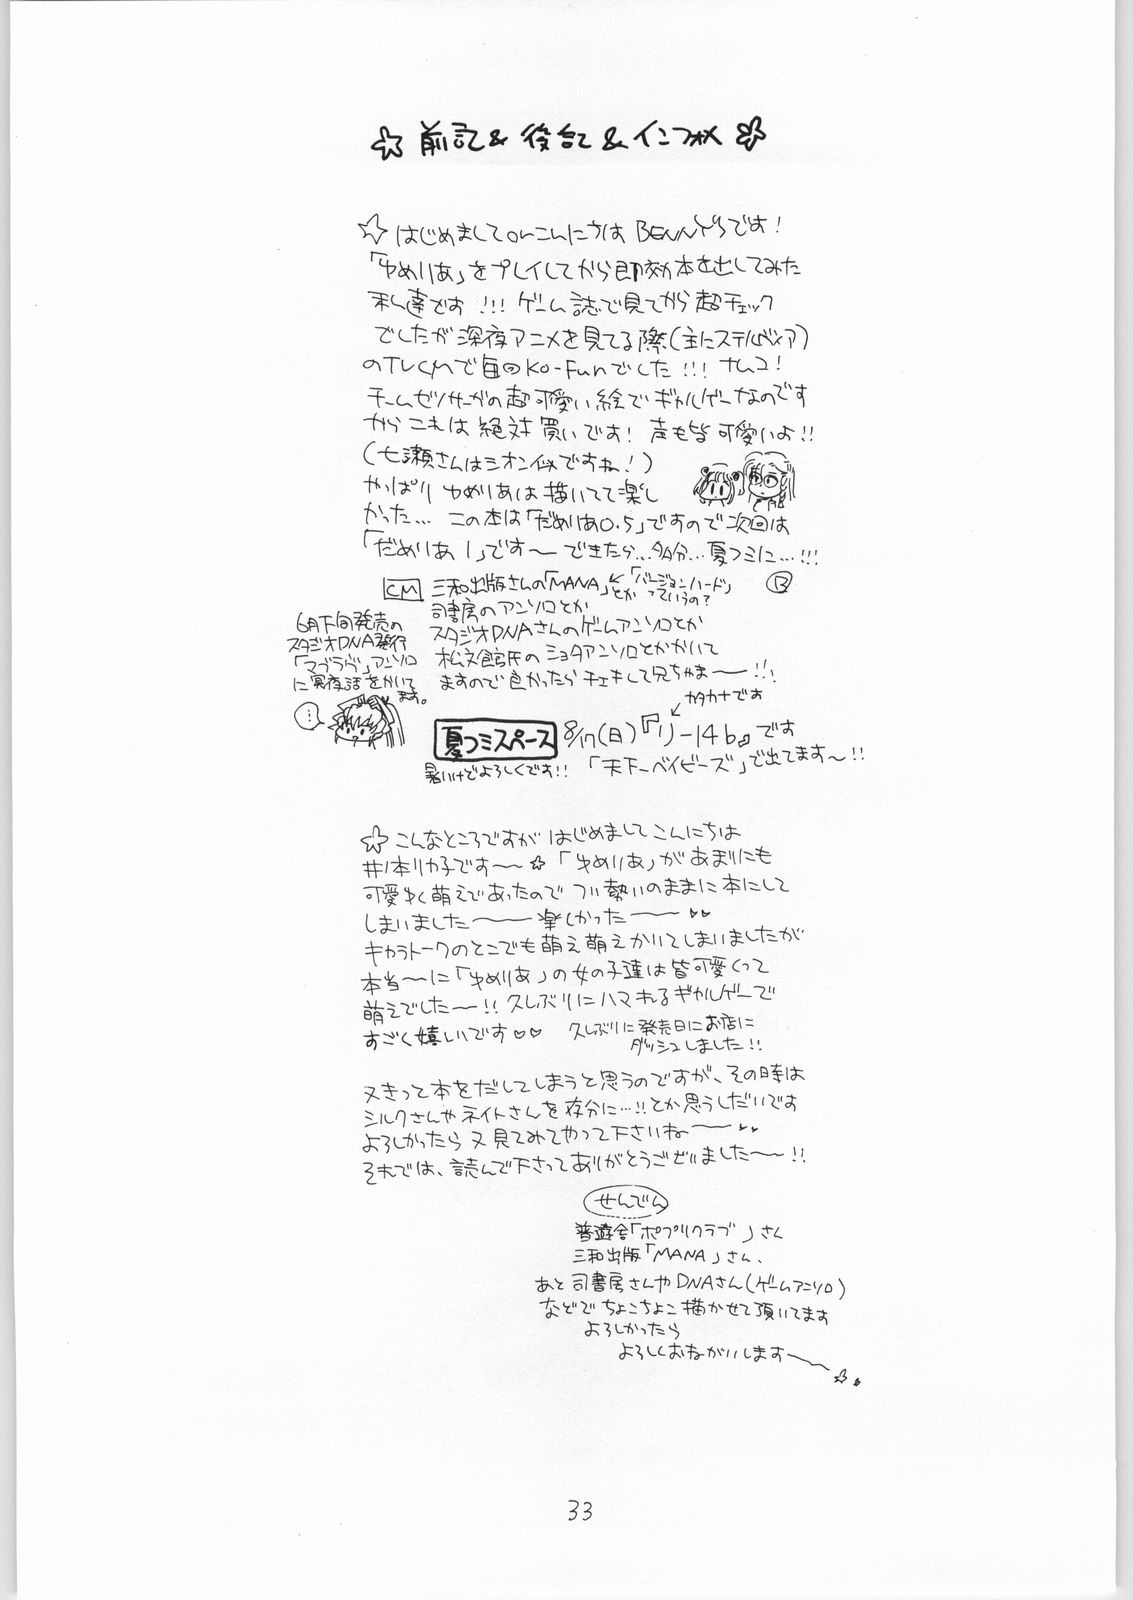 ☆ 前記&後記&インフォメ ☆
☆ はじめましてorこんにちは BENNY'Sです!
「ゆめりあ」をプレイしてから即効本を出してみた
私達です!!! ゲーム誌で見てから超チェック
でしたが深夜アニメを見てる際(主にステルヴィア)
のTVCMで毎回Ko-Funでした!!! ナムコ!
チームゼノサーガの超可愛い絵でギャルゲーなのです
からこれは絶対買いです! 声も皆可愛いよ!!
(七瀬さんはシオン似ですね!)
やっぱりゆめりあは描いてて楽し
かった… この本は「だめりあ0.5」ですので次回は
「だめりあ1」です〜 できたら…多分…夏コミに…!!!
CM 三和出版さんの「MANA」とか ←「バージョンハード」っていうの? B
司書房のアンソロとか
スタジオDNAさんのゲームアンソロとか
松文館氏のショタアンソロとかかいて
ますので良かったらチェキして兄ちゃま〜!!!
6月下旬発売の
スタジオDNA発行
「マブラヴ」アンソロ
に冥夜話をかいて
ます。
…
カタカナです
夏コミスペース 8/17(日)『リ-14b』です
暑いけどよろしくです!! 「天下一ベイビーズ」で出てます〜!!
☆ こんなところですが はじめましてこんにちは
井ノ本リカ子です〜☆「ゆめりあ」があまりにも
可愛ゆく萌えであったので つい勢いのままに本にして
しまいました〜 楽しかった〜♥♥
キャラトークのとこでも萌え萌えかいてしまいましたが
本当〜に「ゆめりあ」の女の子達は皆可愛くって
萌えでした〜!! 久しぶりにハマれるギャルゲーで
すごく嬉しいです♥♥ 久しぶりに発売日にお店に
ダッシュしました!!
又きっと本をだしてしまうと思うのですが、その時は
シルクさんやネイトさんを存分に…!!とか思うしだいです
よろしかったら又見てみてやって下さいね〜♥♥
それでは、読んで下さってありがとうございました〜!!
せんでん
普遊舎「ポプリクラブ」さん
三和出版「MANA」さん、
あと司書房さんやDNAさん(ゲームアンソロ)
などでちょこちょこ描かせて頂いてます
よろしかったら
よろしくおねがいします〜☆
33